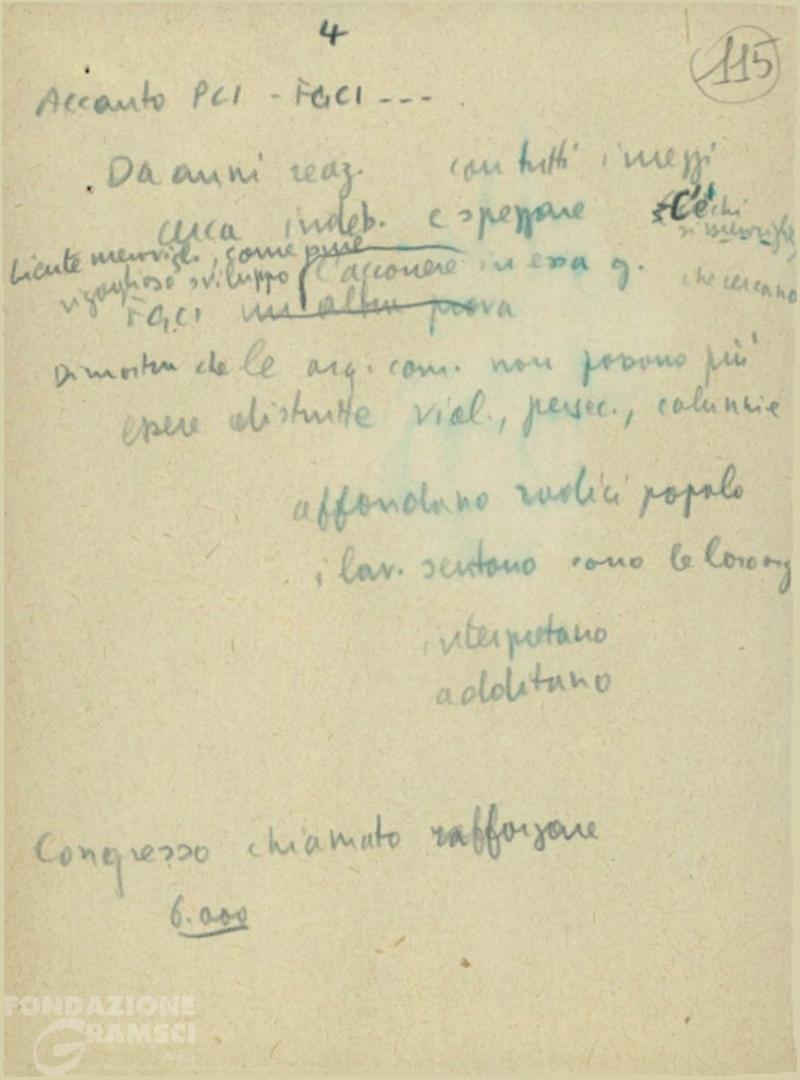 4
115
Accanto PCI - FGCI ---
Da anni reaz. con tutti i mezzi
cerca indeb. e spezzare C'è chi
si meraviglia
Niente meravigl., come pure
rigoglioso sviluppo l'accorrere in essa g. che cercano
FGCI un altra prova
Dimostra che le org. com. non possono più
essere distrutte viol., persec., calunnie
affondano radici popolo
i lav. sentono sono le loro org
interpretano
additano
Congresso chiamato rafforzare
6.000
FONDAZIONE
GRAMSCI
onlus